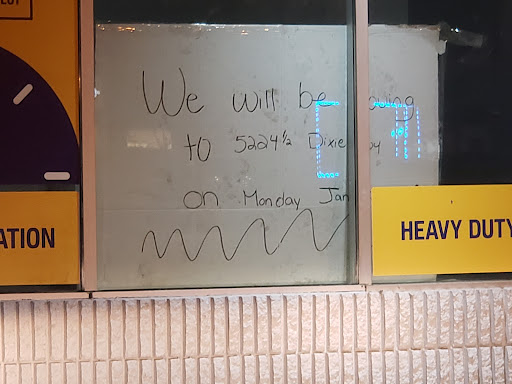 We will be
to 5224½ Dixie
on Monday Jan
ATION
HEAVY DUTY